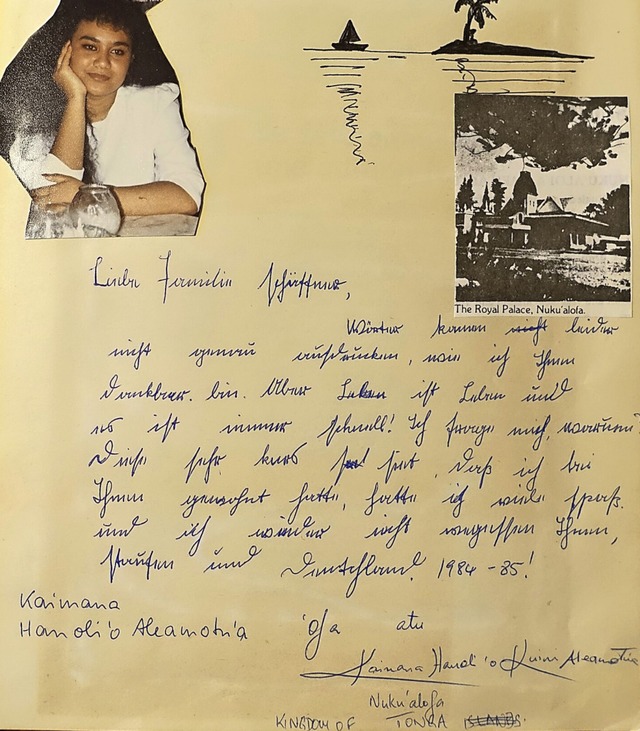 The Royal Palace, Nuku'alofa.
Liebe Familie Schäffner,
Wörter konnen nicht leider
nicht genau ausdrucken, wie ich Ihnen
dankbar bin. Aber Leben ist Leben und
es ist immer schnell! Ich frage mich, warum?
Diese sehr kurs Zeit, daß ich bei
Ihnen gewohnt hatte, hatte ich viele spaß.
und ich wieder nicht vergessen Ihnen,
Staufen und Deutschland. 1984-85!
Kaimana
'Ofa atu
Kaimana
Nuku'alofa
KINGDOM OF TONGA ISLANDS.